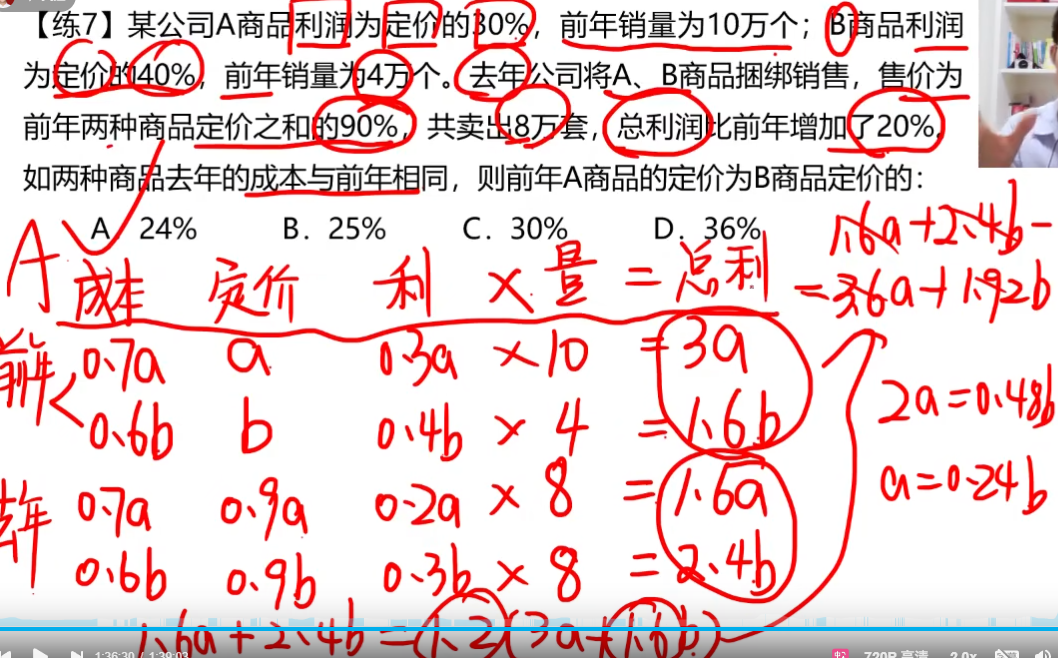 【练7】某公司A商品利润为定价的30%，前年销量为10万个；B商品利润
为定价的40%，前年销量为4万个。去年公司将A、B商品捆绑销售，售价为
前年两种商品定价之和的90%，共卖出8万套，总利润比前年增加了20%。
如两种商品去年的成本与前年相同，则前年A商品的定价为B商品定价的：
A．24% B．25% C．30% D．36%
1.6a+2.4b-
A 成本 定价 利 × 量 = 总利
=3.6a+1.92b
前年 0.7a a 0.3a ×10 =3a
2a=0.48b
0.6b b 0.4b × 4 =1.6b
a=0.24b
去年 0.7a 0.9a 0.2a × 8 =1.6a
0.6b 0.9b 0.3b × 8 =2.4b
1.6a+2.4b=(1.2)(3a+1.6b)
1:36:30 / 1:39:03 720P 高清 2.0x